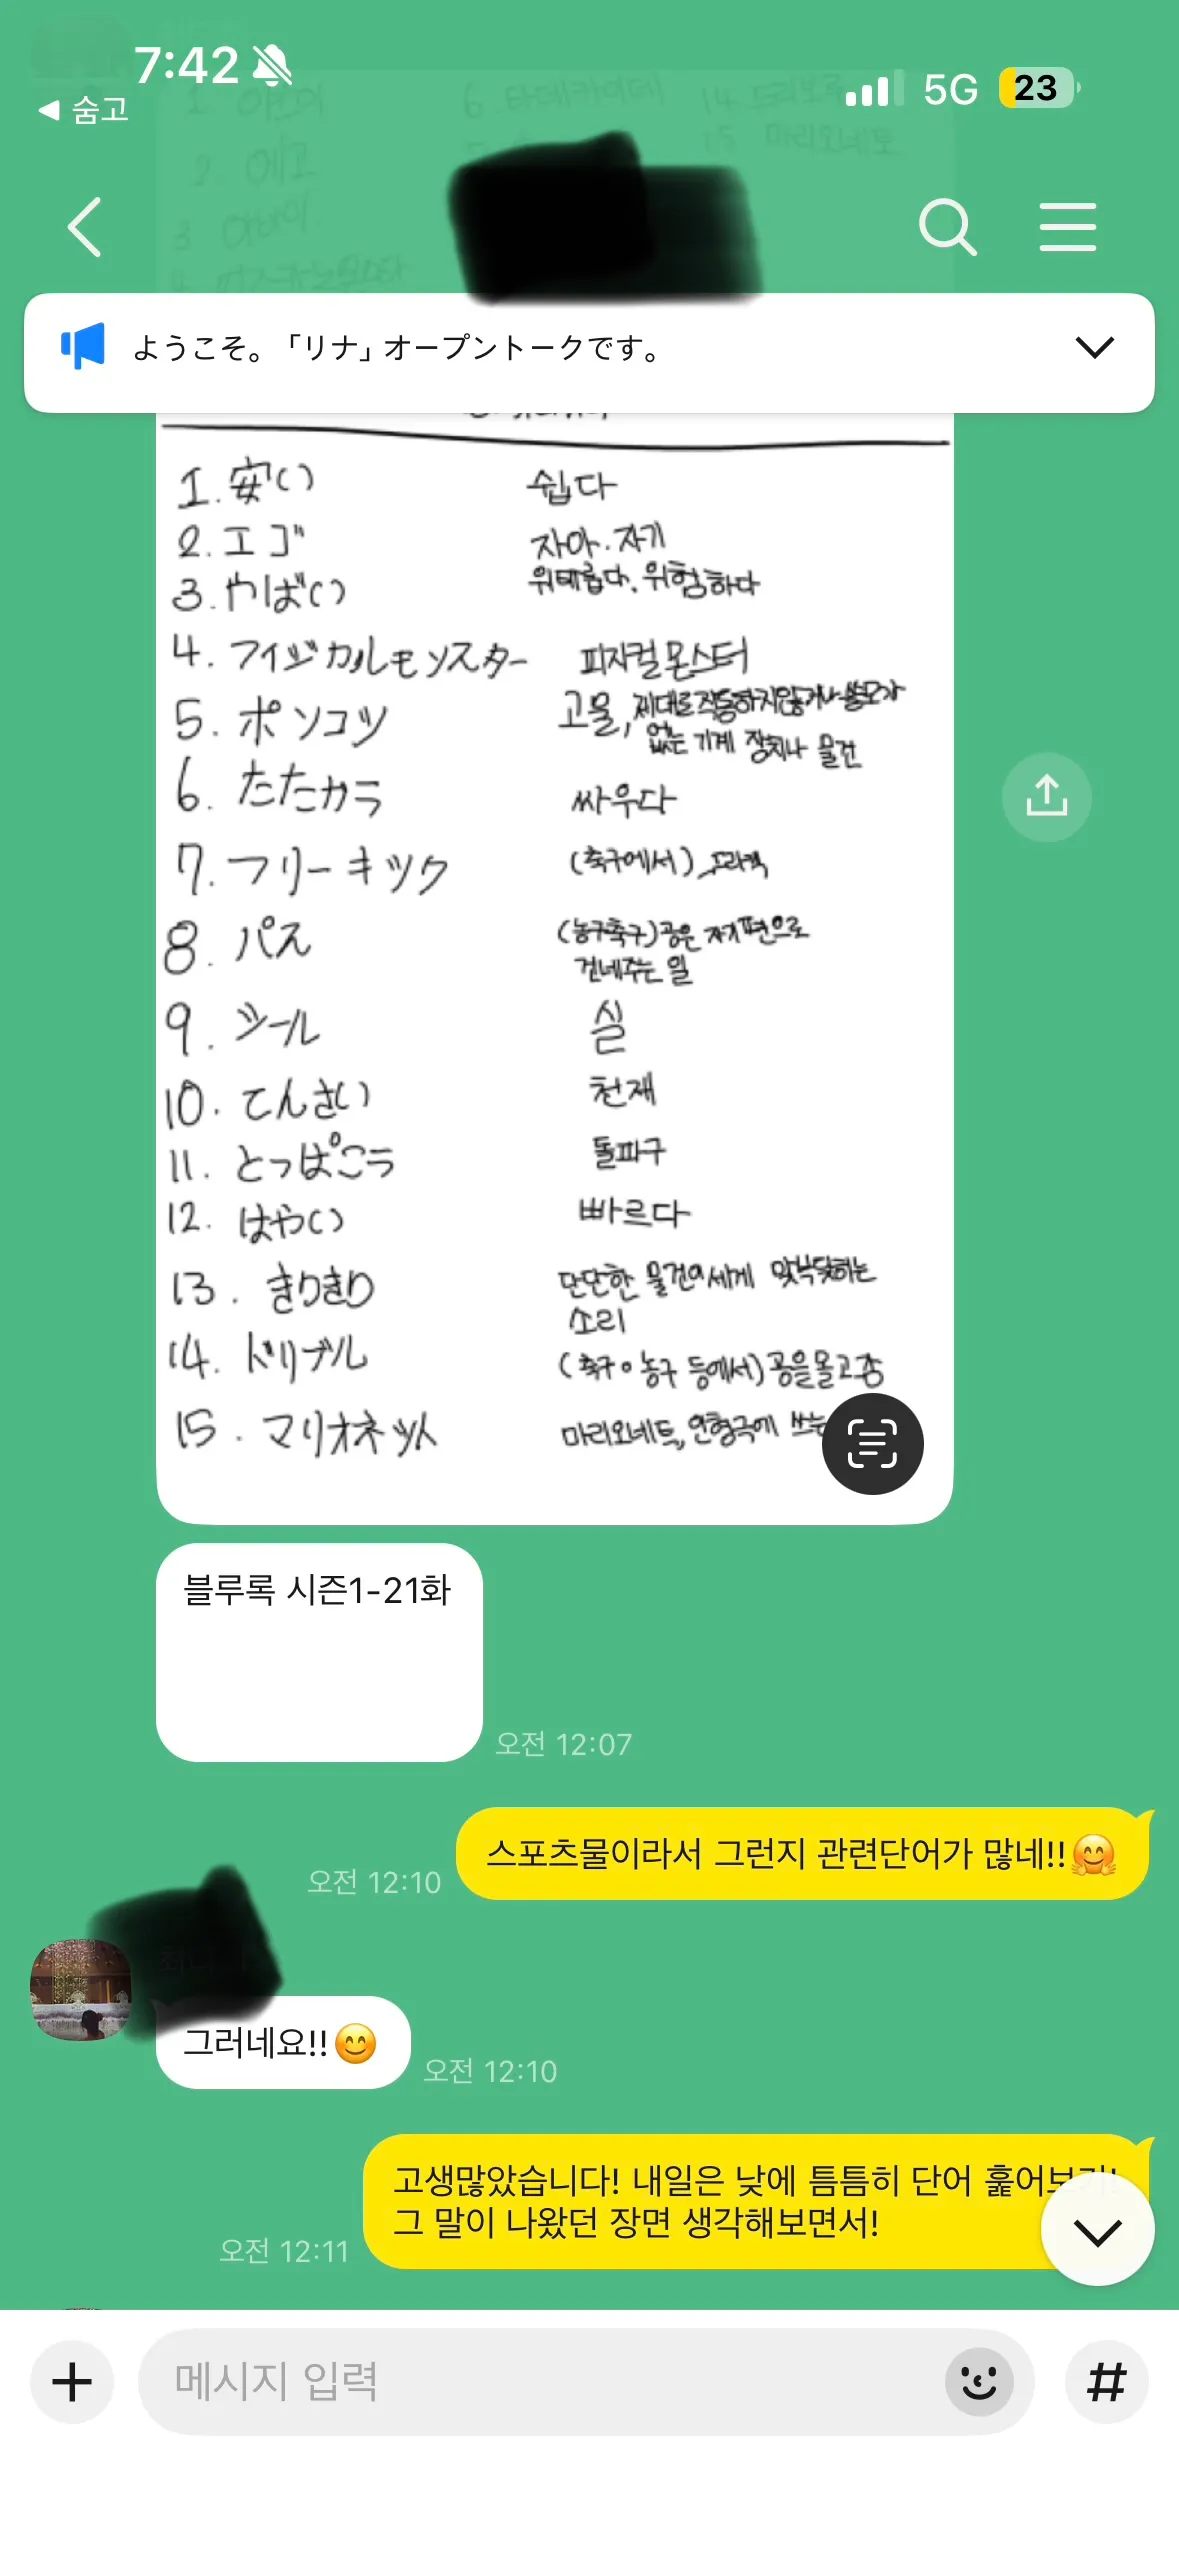 7:42
5G
23
숨고
6. 타타카이데
14. 드리브루
2. 에고
15 마리오네토
ようこそ。「リナ」オープントークです。
1. 安い 쉽다
2. エゴ 자아. 자기
3. やばい 위태롭다. 위험하다
4. フィジカルモンスター 피지컬 몬스터
5. ポンコツ 고물, 제대로 작동하지않거나 쓸모가
없는 기계 장치나 물건
6. たたカラ 싸우다
7. フリーキック (축구에서) 프리킥
8. パス (농구축구)공을 자기편으로
건네주는 일
9. シール 실
10. てんさい 천재
11. とっぱこう 돌파구
12. はやい 빠르다
13. きりきり 단단한 물건이 세게 맞부딪히는
소리
14. ドリブル (축구•농구 등에서)공을 몰고 감
15. マリオネット 마리오네트, 인형극에 쓰는
블루록 시즌1-21화
오전 12:07
스포츠물이라서 그런지 관련단어가 많네!!🤗
오전 12:10
그러네요!!😊
오전 12:10
고생많았습니다! 내일은 낮에 틈틈히 단어 훑어보기!
그 말이 나왔던 장면 생각해보면서!
오전 12:11
메시지 입력
#